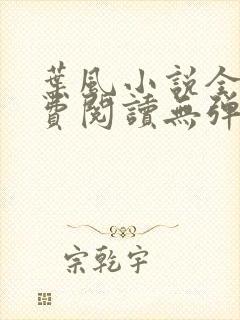 葉風小說全
費閱讀無彈
宗乾宇